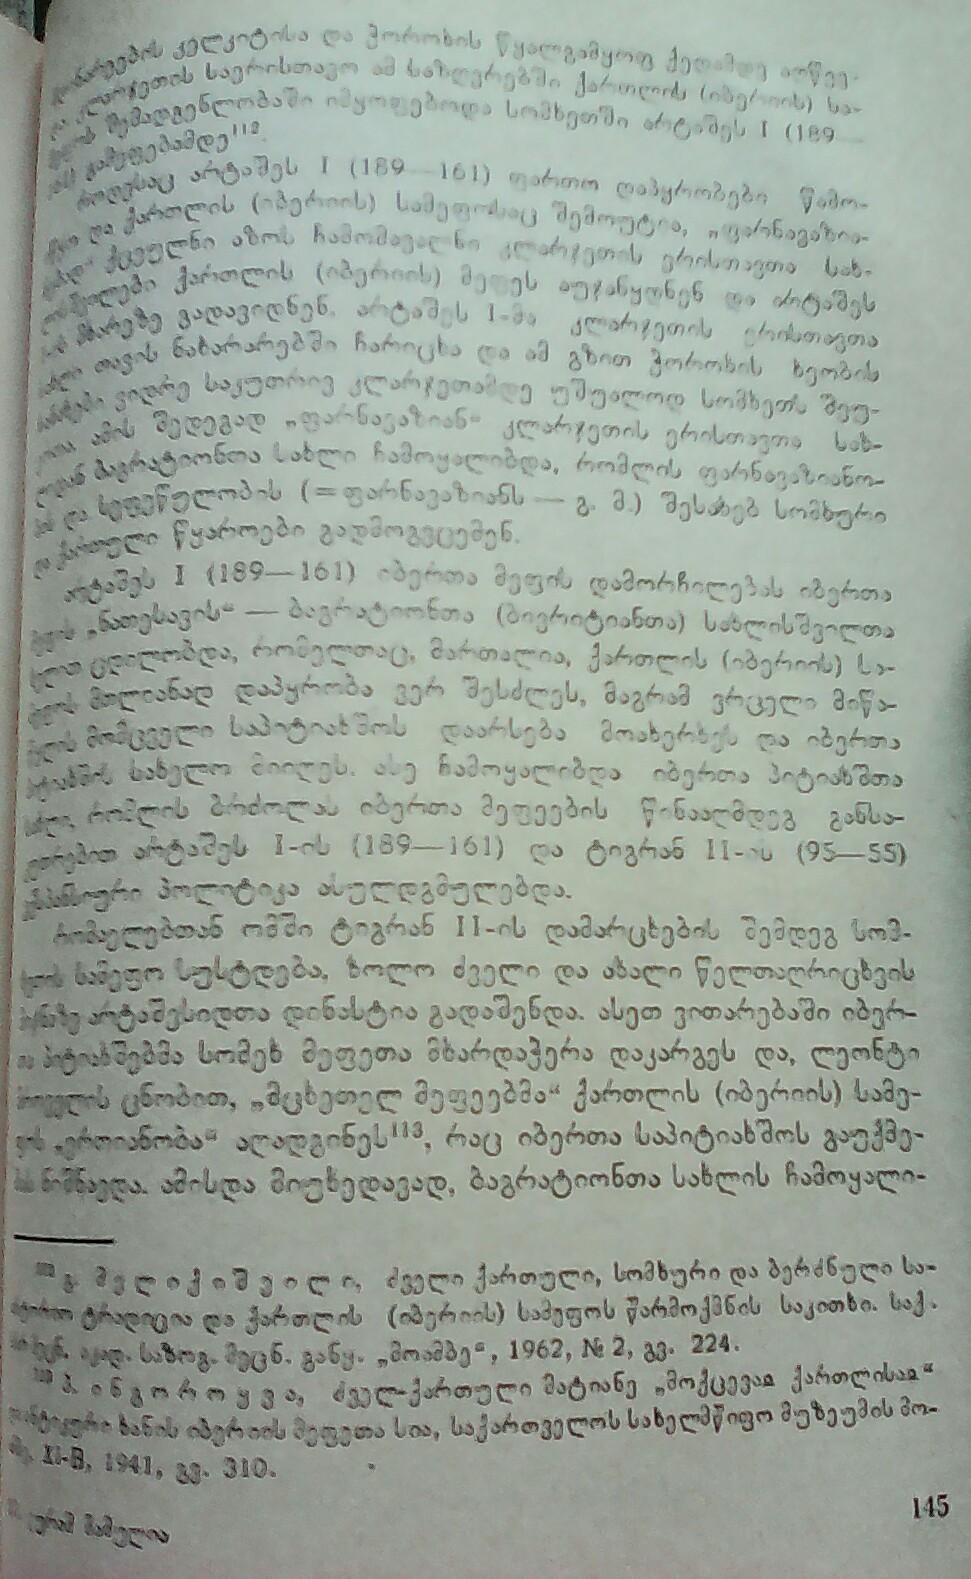 კელკიტისა და ჭოროხის წყალგამყოფ ქედამდე აღწევ-
საერისთავო ამ საზღვრებში ქართლის (იბერიის) სა-
შემადგენლობაში იმყოფებოდა სომხეთში არტაშეს I (189—
გამეფებამდე¹¹².
როდესაც არტაშეს I (189—161) ფართო დაპყრობები წამო-
და ქართლის (იბერიის) სამეფოსაც შემოუტია, „ფარნავაზია-
ქცეულნი აზოს ჩამომავალნი კლარჯეთის ერისთავთა სახ-
ქართლის (იბერიის) მეფეს აუჯანყდნენ და არტაშეს
მხარეზე გადავიდნენ. არტაშეს I-მა კლარჯეთის ერისთავთა
თავის ნახარარებში ჩარიცხა და ამ გზით ჭოროხის ხეობის
ვიდრე საკუთრივ კლარჯეთამდე უშუალოდ სომხეთს შეუ-
ამის შედეგად „ფარნავაზიან“ კლარჯეთის ერისთავთა სახ-
ბაგრატიონთა სახლი ჩამოყალიბდა, რომლის ფარნავაზიანო-
და სეფეწულობის (=ფარნავაზიანს — გ. მ.) შესახებ სომხური
და ქართული წყაროები გადმოგვცემენ.
არტაშეს I (189—161) იბერთა მეფის დამორჩილებას იბერთა
„ნათესავის“ — ბაგრატიონთა (ბივრიტიანთა) სახლისშვილთა
ცდილობდა, რომელთაც, მართალია, ქართლის (იბერიის) სა-
მთლიანად დაპყრობა ვერ შესძლეს, მაგრამ ვრცელი მიწა-
მომცველი საპიტიახშოს დაარსება მოახერხეს და იბერთა
სახელო მიიღეს. ასე ჩამოყალიბდა იბერთა პიტიახშთა
რომლის ბრძოლას იბერთა მეფეების წინააღმდეგ განსა-
არტაშეს I-ის (189—161) და ტიგრან II-ის (95—55)
პოლიტიკა ასულდგმულებდა.
რომაელებთან ომში ტიგრან II-ის დამარცხების შემდეგ სომ-
სამეფო სუსტდება, ხოლო ძველი და ახალი წელთაღრიცხვის
არტაშესიდთა დინასტია გადაშენდა. ასეთ ვითარებაში იბერ-
პიტიახშებმა სომეხ მეფეთა მხარდაჭერა დაკარგეს და, ლეონტი
ცნობით, „მცხეთელ მეფეებმა“ ქართლის (იბერიის) სამე-
„ერთიანობა“ აღადგინეს¹¹³, რაც იბერთა საპიტიახშოს გაუქმე-
ნიშნავდა. ამისდა მიუხედავად, ბაგრატიონთა სახლის ჩამოყალი-
გ. მელიქიშვილი, ძველი ქართული, სომხური და ბერძნული სა-
ტრადიცია და ქართლის (იბერიის) სამეფოს წარმოქმნის საკითხი. საქ.
აკად. საზოგ. მეცნ. განყ. „მოამბე“, 1962, № 2, გვ. 224.
პ. ინგოროყვა, ძველ-ქართული მატიანე „მოქცევაჲ ქართლისაჲ“
ანტიკური ხანის იბერიის მეფეთა სია, საქართველოს სახელმწიფო მუზეუმის მო-
XI-B, 1941, გვ. 310.
მამულია
145